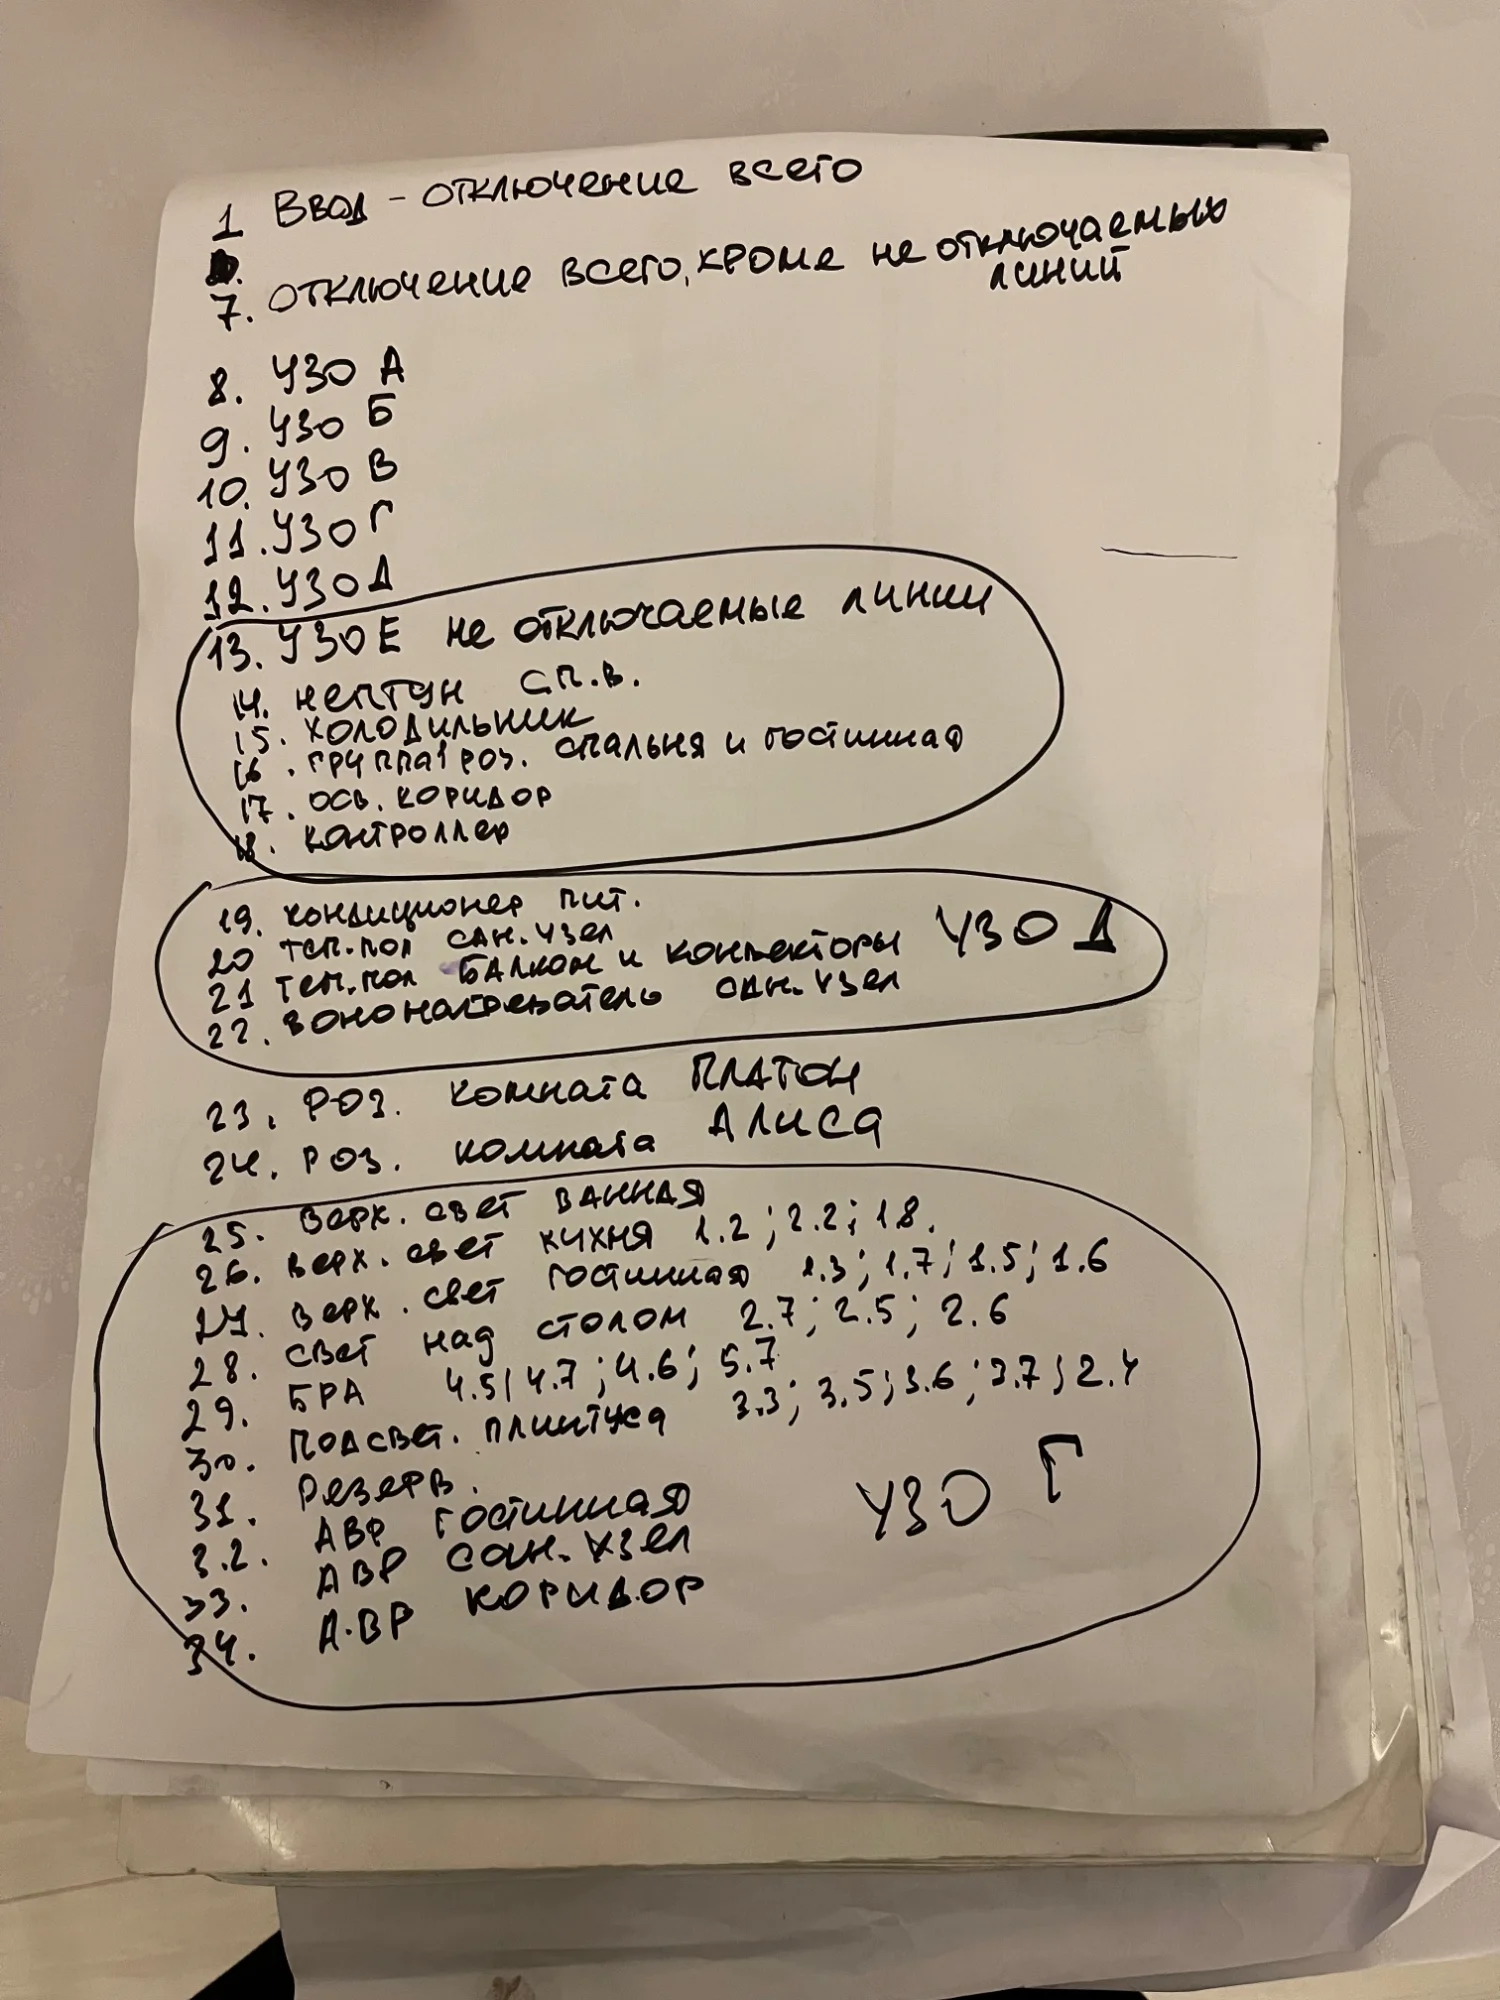 1 Ввод - отключение всего
7. отключение всего, кроме не отключаемых
линий
8. УЗО А
9. УЗО Б
10. УЗО В
11. УЗО Г
12. УЗО Д
13. УЗО Е не отключаемые линии
14. нептун сп.в.
15. холодильник
16. группа 1 роз. спальня и гостинная
17. осв. коридор
18. контроллер
19. кондиционер пит.
20 теп.пол сан.узел
21 теп.пол балкон и конвекторы УЗО Д
22. водонагреватель сан.узел
23. роз. комната ПЛАТОН
24. роз. комната АЛИСА
25. верх. свет ванная
26. верх. свет кухня 1.2; 2.2; 1.8.
27. верх. свет гостинная 1.3; 1.7; 1.5; 1.6
28. свет над столом 2.7; 2.5; 2.6
29. БРА 4.5; 4.7; 4.6; 5.7
30. подсвет. плинтуса 3.3; 3.5; 3.6; 3.7; 2.4
31. резерв.
32. АВР гостинная УЗО Г
33. АВР сан. узел
34. АВР коридор